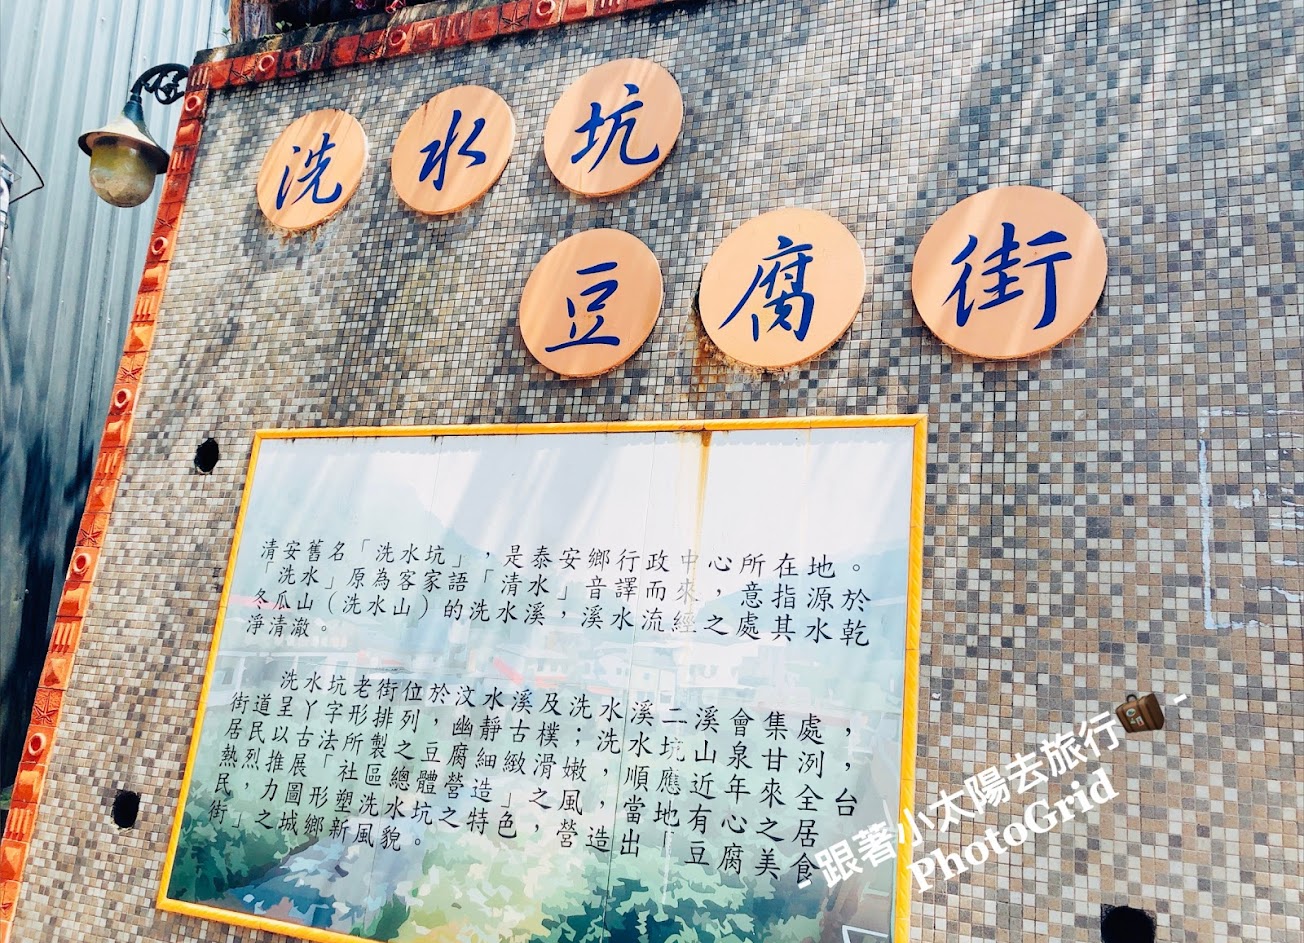 洗水坑
豆腐街
清安舊名「洗水坑」，是泰安鄉行政中心所在地。
「洗水」原為客家語「清水」音譯而來，意指源於
冬瓜山（洗水山）的洗水溪，溪水流經之處其水乾
淨清澈。
洗水坑老街位於汶水溪及洗水溪二溪會集處，
街道呈丫字形排列，幽靜古樸；洗水坑山泉甘洌，
居民以古法所製之豆腐細緻滑嫩，順應近年來全台
熱烈推展「社區總體營造」之風，當地有心之居
民，力圖形塑洗水坑之特色，營造出「豆腐美食
街」之城鄉新風貌。
- 跟著小太陽去旅行 -
PhotoGrid